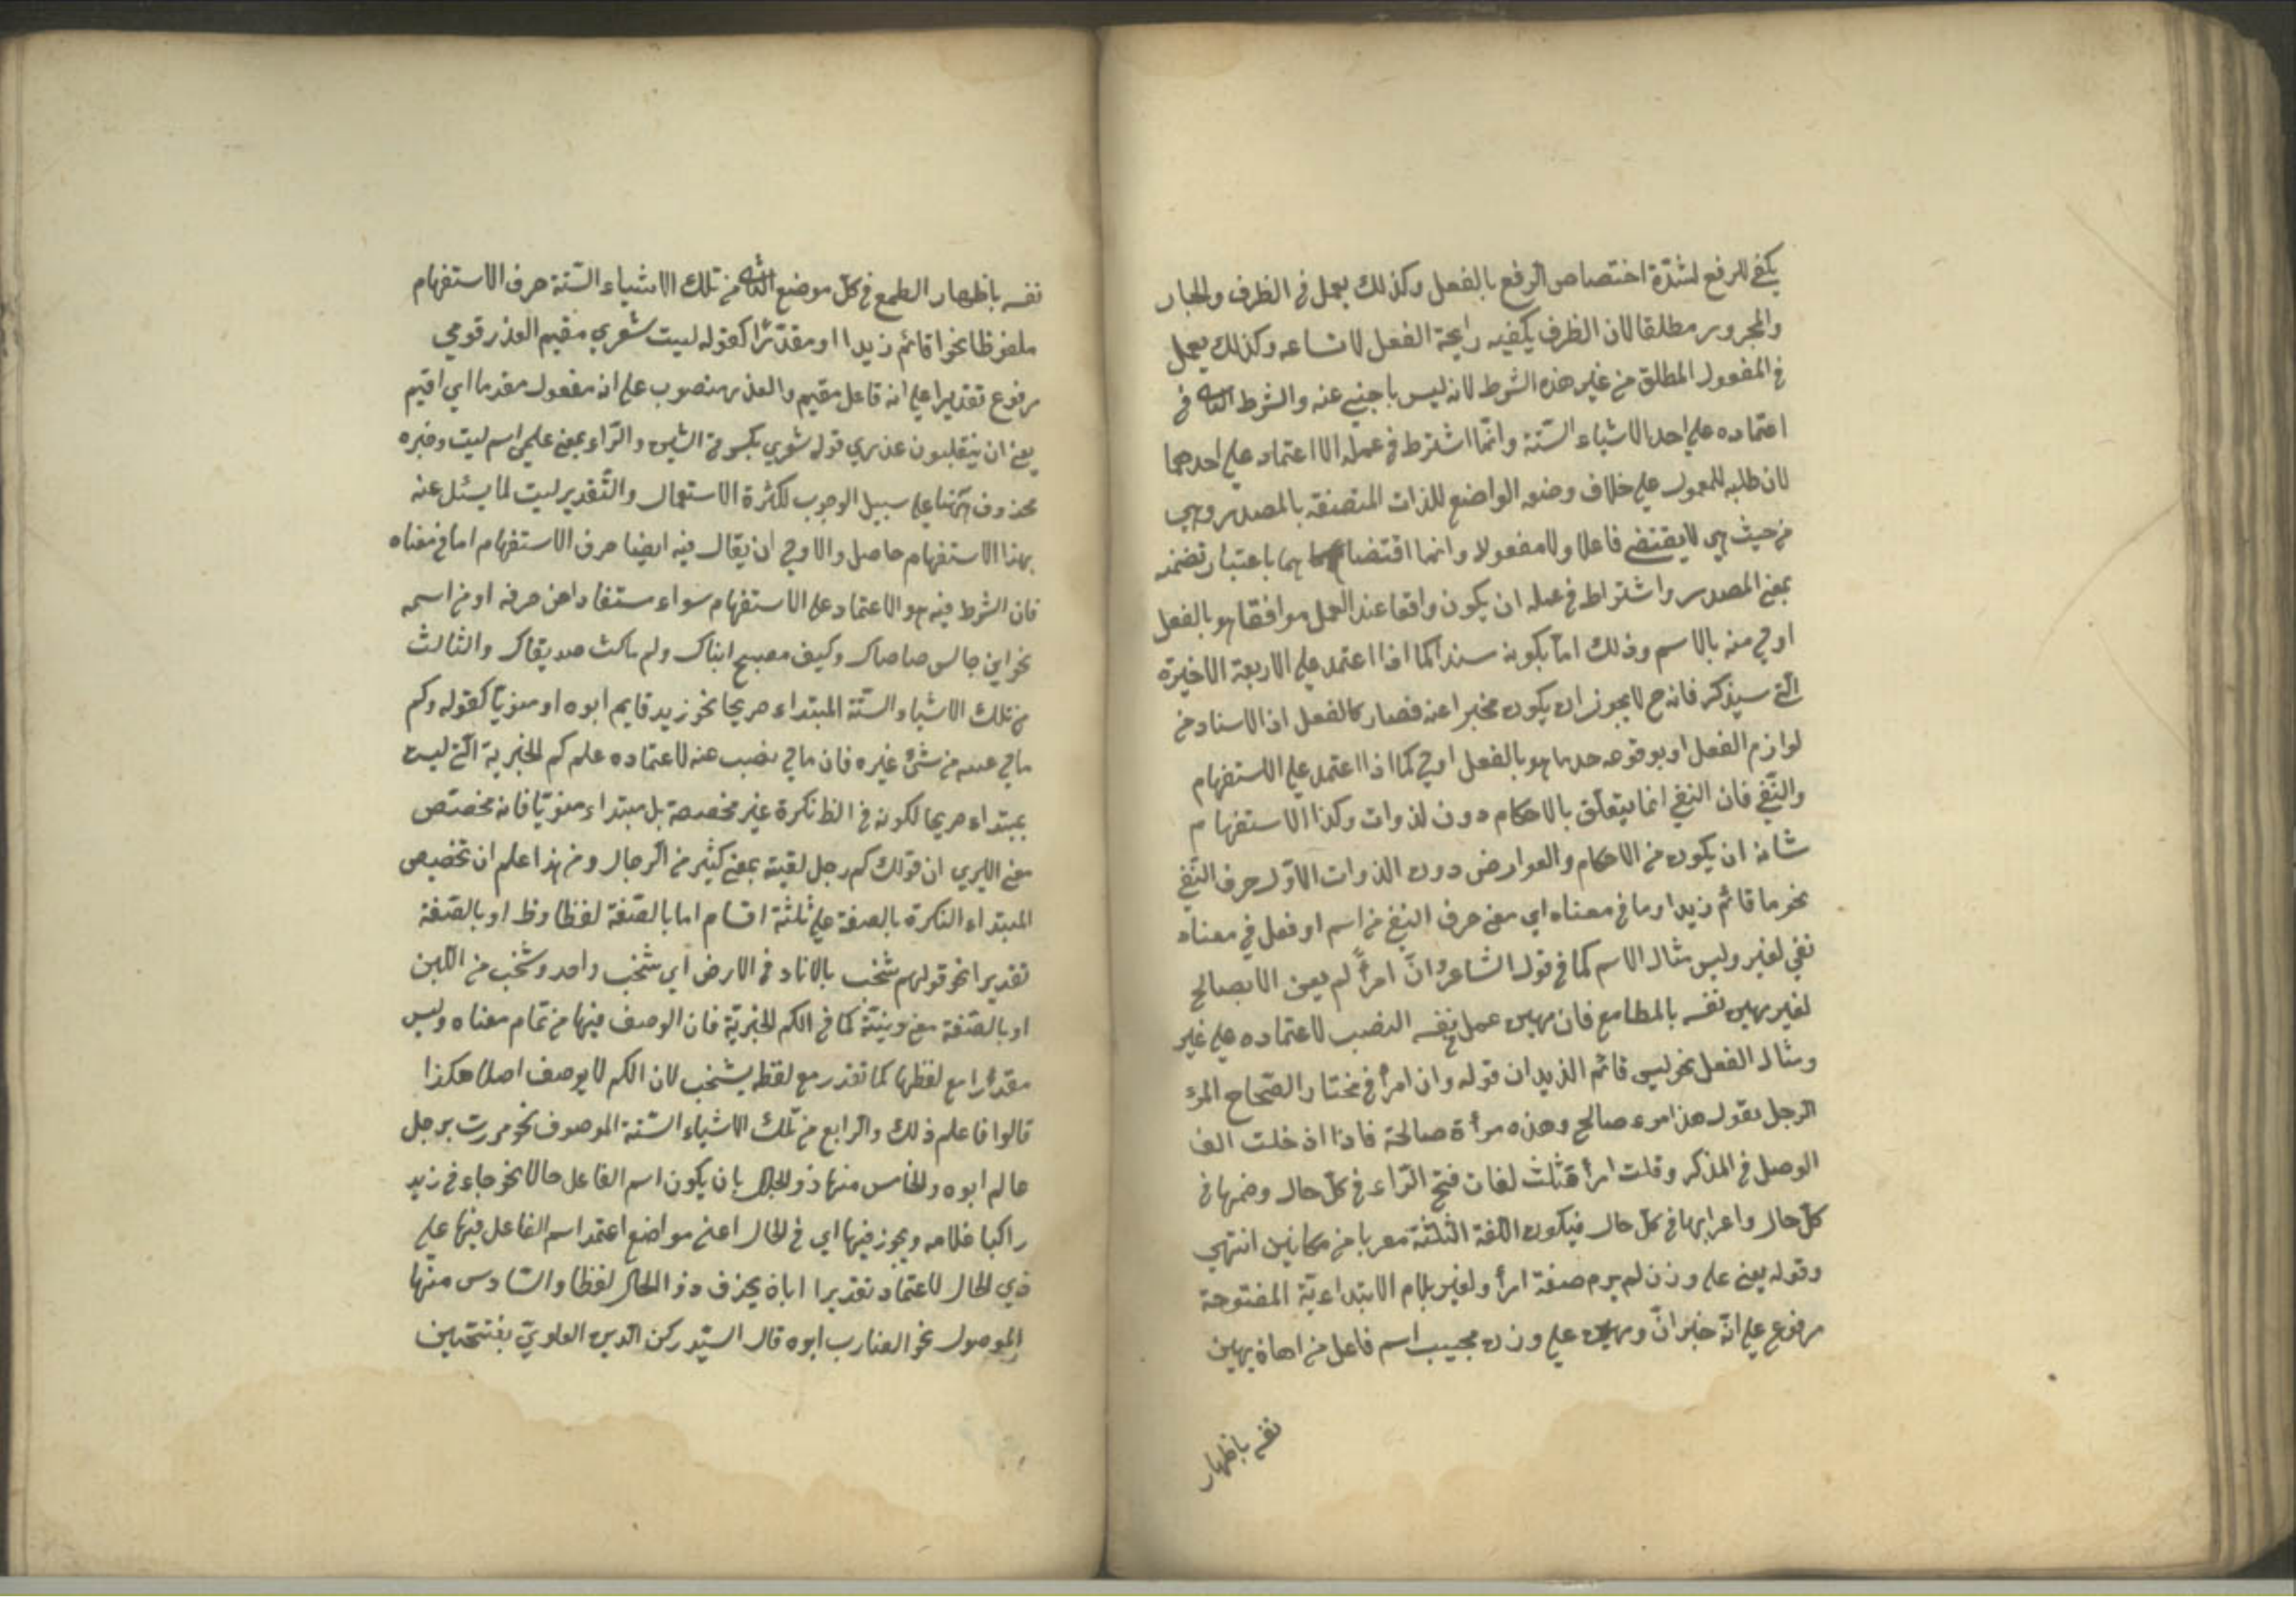 يكفي للرفع لشدّة اختصاص الرفع بالفعل وكذلك يعمل في الظرف والجار
والمجرور مطلقا لان الظرف يكفيه رايحة الفعل لاتساعه وكذلك يعمل
في المفعول المطلق من غير هذه الشرط لانه ليس باجنبي عنه والشرط الثاني في
اعتماده على احد الاشياء الستّة وانّما اشترط في عمله الاعتماد على احدهما
لان طلبه للمعمول على خلاف وضعه الواضع للذات المتصفة بالمصدر وهي
من حيث هي لا يقتضي فاعلا ولا مفعولا وانما اقتضا هما باعتبار تضمنه
بمعنى المصدر واشتراط في عمله ان يكون واقعا عند العمل موافقا هو بالفعل
اولي منه بالاسم وذلك امّا بكونه سندا كما اذا اعتمد على الاربعة الاخيرة
الّتي سيذكر فانه ح لا يجوز ان يكون مخبرا عنه فصار كالفعل اذ الاسناد من
لوازم الفعل او بوقوعه حد ما هو بالفعل اولي كما اذا اعتمد على الاستفهام
والنّفي فان النفي انما يتعلّق بالاحكام دون لذوات وكذا الاستفهام
شانه ان يكون من الاحكام والعوارض دون الذوات الاوّل حرف النّفي
نحو ما قائم زيد او ما في معناه اي معنى حرف النفي من اسم او فعل في معناه
نفي لغير وليس مثال الاسم كما في قول الشاعر وانّ امرأً لم يعن الا بصالح
لغير مهين نفسه بالمطامع فان مهين عمل في نفسه النصب لاعتماده على غير
ومثال الفعل نحو ليس قائم الزيدان قوله وان امرأ في مختار الصّحاح المرؤ
الرجل بقول هذا مرء صالح وهذه مرأة صالحة فاذا ادخلت الف
الوصل في المذكر وقلت امرأ فثلث لغات فتح الرّاء في كلّ حال وضمها في
كلّ حال واعرابها في كلّ حال فيكون اللغة الثلثة معربا من مكانين انتهى
وقوله يعني على وزن لم يرم صفة امرأ ولغير بلام الابتداءيّة المفتوحة
مرفوع على انّه خبر انّ ومهين على وزن مجيب اسم فاعل من اهان يهين
نفسه باظهار
نفسه باظهار الطمع في كلّ موضع الثاني من تلك الاشياء الستّة حرف الاستفهام
ملفوظا نحو اقائم زيدا او مقدّرًا كقوله ليت شعري مقيم العذر قومي
مرفوع تقديرا على انه فاعل مقيم والعذر منصوب على انه مفعول مقدما اي اقيم
يعني ان ينقلبون عذري قوله شعري بكسرة الشين والرّاء بمعنى علمي اسم ليت وخبره
محذوف ههنا على سبيل الوجوب لكثرة الاستعمال والتّقدير ليت لما يسئل عنه
بهذا الاستفهام حاصل والاولي ان يقال فيه ايضا حرف الاستفهام اما في معناه
فان الشرط فيه هو الاعتماد على الاستفهام سواء ستفادا من حرفه او من اسمه
نحو اين جالس صاحباك وكيف مصبح ابناك ولم ماكث صديقاك والثالث
من تلك الاشياء الستّة المبتداء صريحا نحو زيد قايم ابوه او منويّا كقوله وكم
مالئ عينيه من شئ غيره فان مالئ نصب عنه لاعتماده على كم الخبرية الّتي ليست
بمبتداء صريحا لكونه في الظ نكرة غير مخصصة بل مبتداء منويّا فانه مخصّص
معنى الايري ان قولك كم رجل لقيته بمعنى كثير من الرجال ومن هذا علم ان تخصيص
المبتداء النكرة بالصفة على ثلثة اقسام اما بالصّفة لفظا وظ او بالصّفة
تقديرا نحو قولهم شخب بالاناد في الارض اي شخب واحد وشخب من اللّبن
او بالصّفة معنى ونيّة كما في الكم الخبريّة فان الوصف فيها من تمام معناه وليس
مقدّرا مع لفظها كما تقدر مع لفظه بشخب لان الكم لا يوصف اصلا هكذا
قالوا فاعلم ذلك والرابع من تلك الاشياء الستّة الموصوف نحو مررت برجل
عالم ابوه والخامس منها ذو الحال بان يكون اسم الفاعل حالا نحو جاء في زيد
راكبا غلامه ويجوز فيها اي في الحال اعني مواضع اعتمد اسم الفاعل فيها على
ذي الحال لاعتماد تقديرا ابان يحذف ذو الحال لفظا والسّادس منها
الموصول نحو الضارب ابوه قال السيّد ركن الدين العلويّ بفتحتين